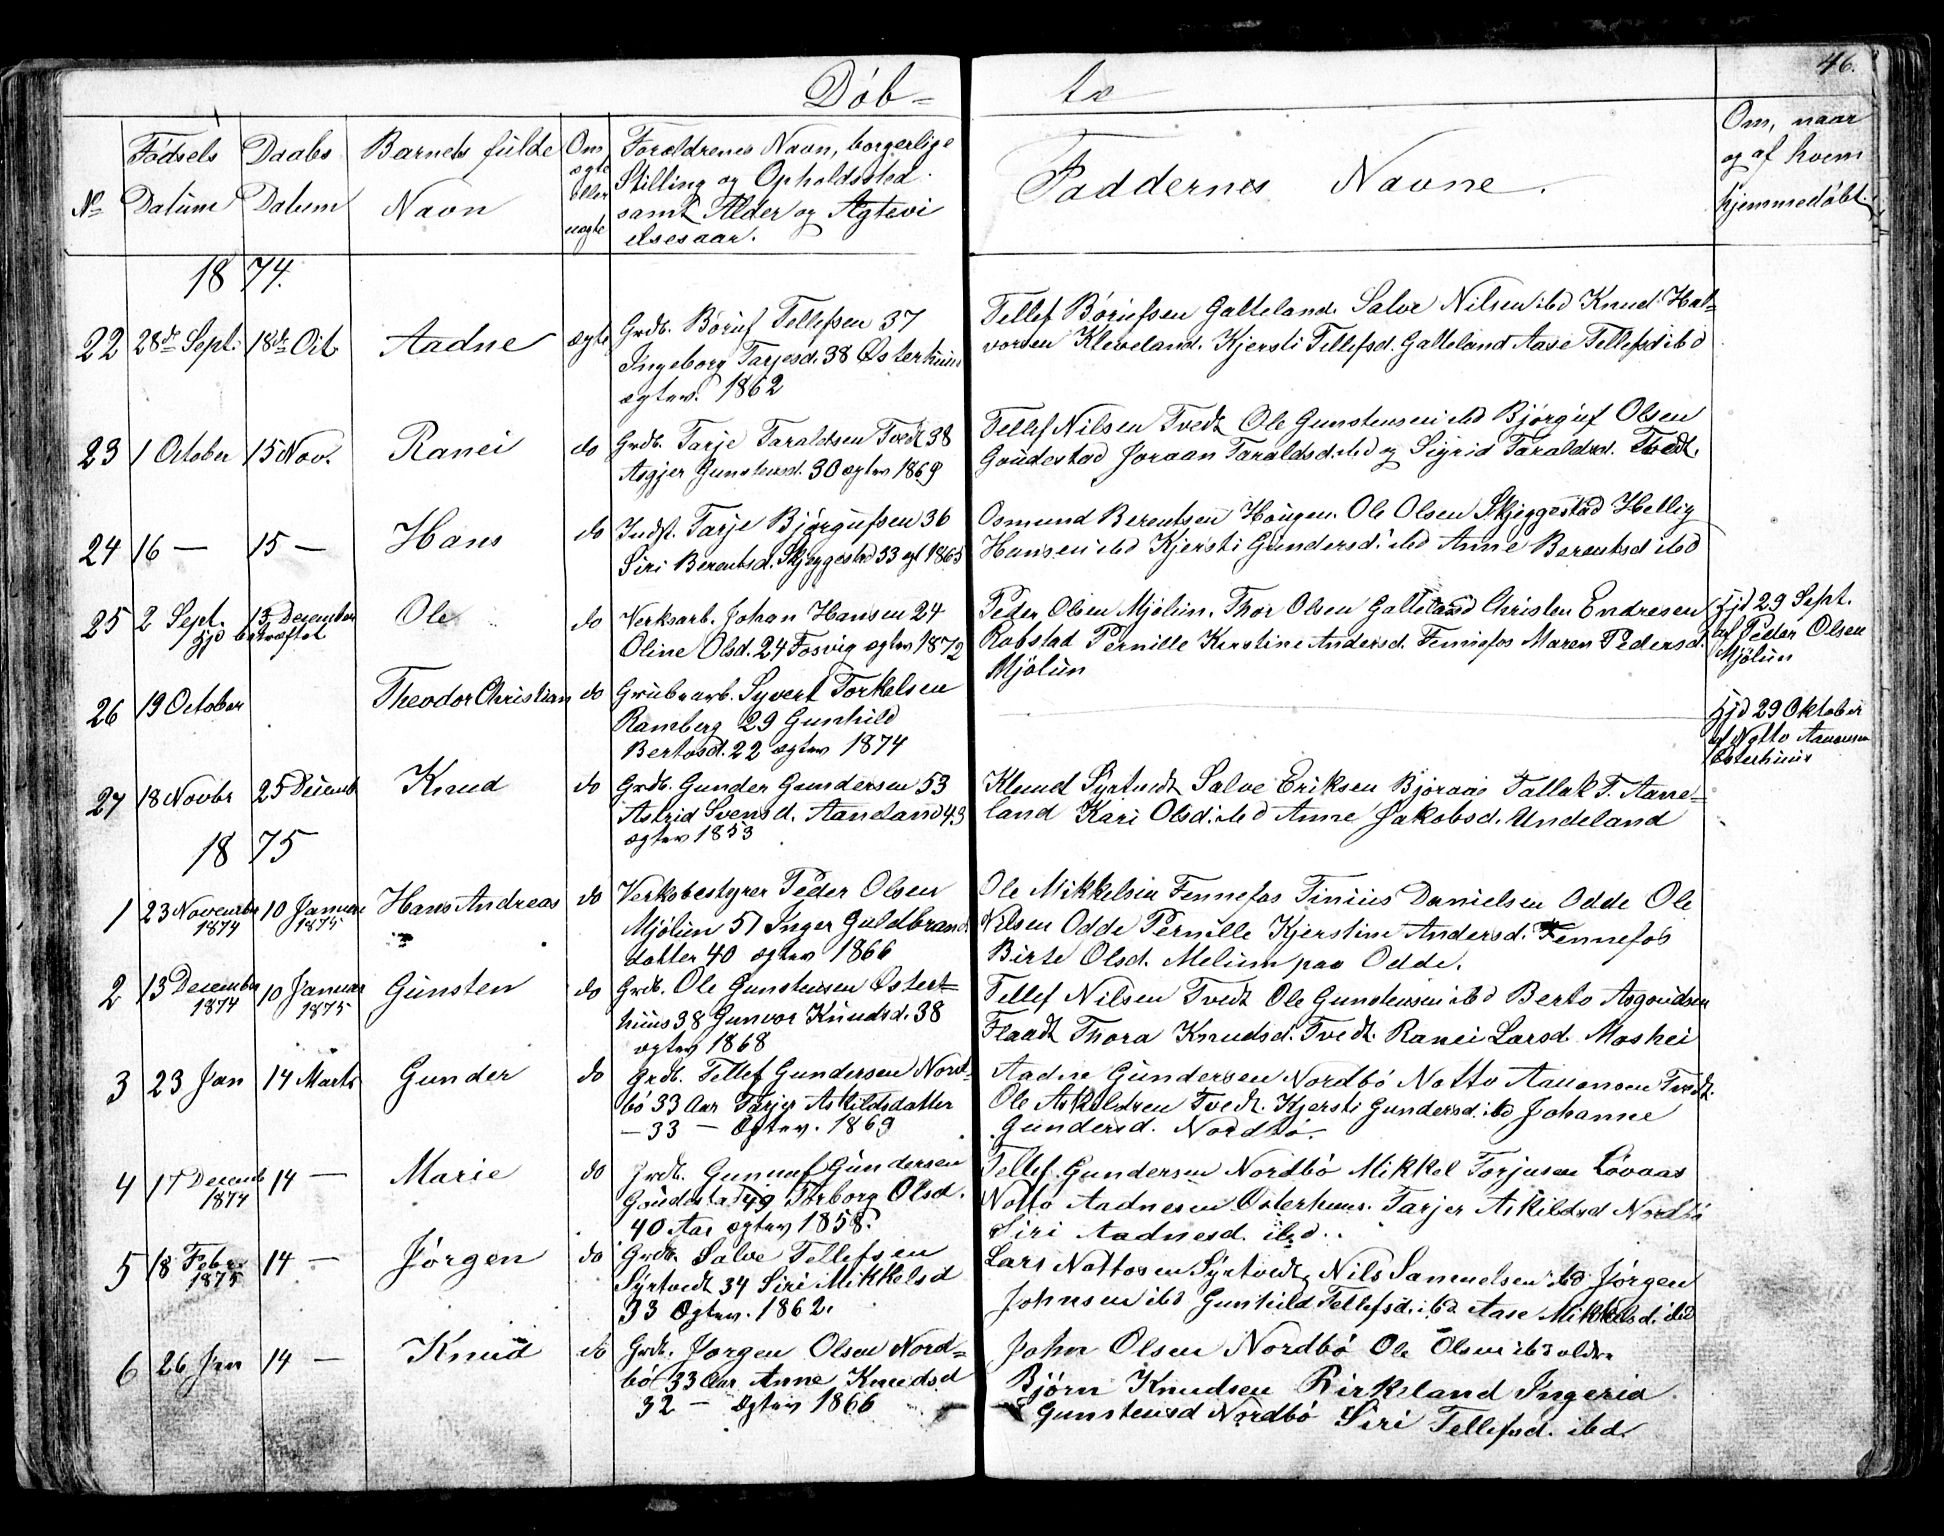 46.
Døb- te
No Fødsels Datum
Daabs Datum
Barnets fulde Navn
Om ægte eller uægte
Forældrenes Navn, borgerlige
Stilling og Opholdssted
samt Alder og Ægtevi
elsesaar.
Faddernes Navne.
Om, naar
og af hvem
hjemmedøbt.
1874.
22 28de Sept. 18de Oct. Aadne ægte
Grdb. Børuf Tellefsen 37
Ingeborg Tarjesd. 38 Østerhuus
ægtev. 1862
Tellef Børufsen Galteland. Salve Nilsen ibd Knud Hal-
vorsen Kleveland. Kjersti Tellefsd. Galteland Aase Tellefsd ibd
23 1 October 15 Nov. Ranei do
Grdb. Tarje Taraldsen Tvedt 38
Asgjer Gunstensd. 30 ægtev 1869
Tellef Nilsen Tvedt Ole Gunstensen ibd Bjørguf Olsen
Goudestad Joraan Taraldsd. ibd og Sigrid Taraldsd. Tvedt.
24 16 — 15 — Hans do
Indst. Tarje Bjørgufsen 36
Siri Berentsd. Skjeggestad 33 ægt 1865
Osmund Berentsen Hougen. Ole Olsen Skjeggestad Hellig
Hansen ibd Kjersti Gundersd. ibd Anne Berentsd ibd
25 2 Sept. 13 December Ole do
hjd bekræftet
Verksarb. Johan Hansen 24
Oline Olsd. 24 Fosvig ægtev 1872
Peder Olsen Mjølun. Thor Olsen Galteland Christen Endresen
Robstad Pernille Kerstine Andersd. Fennefos Maren Pedersd.
Mjølun
hjd 29 Sept.
af Peder Olsen
Mjølun
26 19 October Theodor Christian do
Grubearb. Syvert Torkelsen
Ramberg 29 Gunhild
Bertosd. 22 ægtev 1874
hjd 29 Oktober
af Notto Aanonsen
Østerhuus
27 18 Novbr 25 Decemb Knud do
Grdb. Gunder Gundersen 53
Astrid Svensd. Aaneland 43
ægtev 1853
Klemed Syrtvedt Salve Eriksen Bjoraas Tallak T. Aane-
land Kari Olsd. ibd Anne Jakobsd. Undeland
1875
1 23 November 1874 10 Januar 1875 Hans Andreas do
Verksbestyrer Peder Olsen
Mjølun 51 Inger Guldbrands
datter 40 ægtev 1866
Ole Mikkelsen Fennefos Tinius Danielsen Odde Ole
Nilsen Odde Pernille Kjerstine Andersd. Fennefos
Birte Olsd. Melum paa Odde.
2 13 December 1874 10 Januar 1875 Gunsten do
Grdb. Ole Gunstensen Østert-
huus 38 Gunvor Knudsd. 38
ægtev 1868
Tellef Nilsen Tvedt Ole Gunstensen ibd Berto Asgoudsen
Flaadt Thora Knudsd. Tvedt. Ranei Larsd. Moshei
3 23 Jan 14 Marts Gunder do
Grdb. Tellef Gundersen Nord-
bø 33 Aar Tarjer Askildsdatter
— 33 — Ægtev. 1869
Aadne Gundersen Nordbø Notto Aanonsen Tvedt.
Ole Askildsen Tvedt. Kjersti Gundersd. ibd Johanne
Gundersd. Nordbø.
4 17 Decemb 1874 14 — Marie do
Grdb. Gunnuf Gundersen
Goudestad 49 Torborg Olsd.
40 Aar ægtev 1858.
Tellef Gundersen Nordbø Mikkel Torjusen Løvaas
Notto Aadnesen Østerhuus. Tarjer Askildsd Nordbø
Siri Aadnesd. ibd.
5 18 Febr. 1875 14 — Jørgen do
Grdb. Salve Tellefsen
Syrtvedt 34 Siri Mikkelsd
33 Ægtev. 1862.
Lars Nottosen Syrtvedt, Nils Samuelsen ibd Jørgen
Johnsen ibd Gunhild Tellefsd. ibd Aase Mikkelsd. ibd
6 26 Jan 14 — Knud do
Grdb. Jørgen Olsen Nord-
bø 33 Aar Anne Knudsd
32 — Ægtev 1866
John Olsen Nordbø Ole Olsen ibd ældre
Bjørn Knudsen Birkeland Ingeria
Gunstensd Nordbø Siri Tellefsd. ibd.